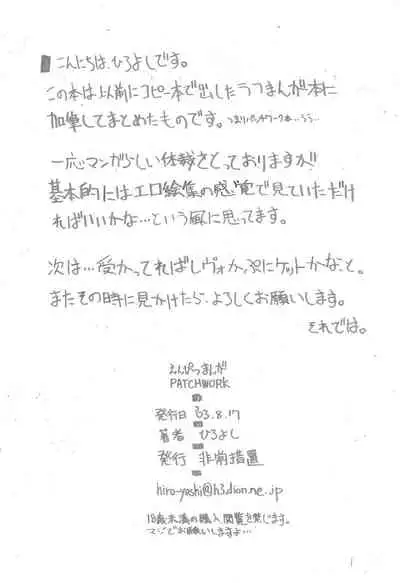 こんにちは、ひろよしです。
この本は以前にコピー本で出したラフまんが本に
加筆してまとめたものです。つまりパッチワーク本…うう…
一応マンガらしい体裁をとっておりますが
基本的にはエロ絵集の感覚で見ていただけ
ればいいかな…という風に思ってます。
次は…受かってればレヴォかぷにケットかなと。
またその時に見かけたら、よろしくお願いします。
それでは。
えんぴつまんが
PATCHWORK
発行日 '03.8.17
著者 ひろよし
発行 非常措置
hiro-yoshi@h3.dion.ne.jp
18歳未満の購入閲覧を禁じます。
マジでお願いしますよ…